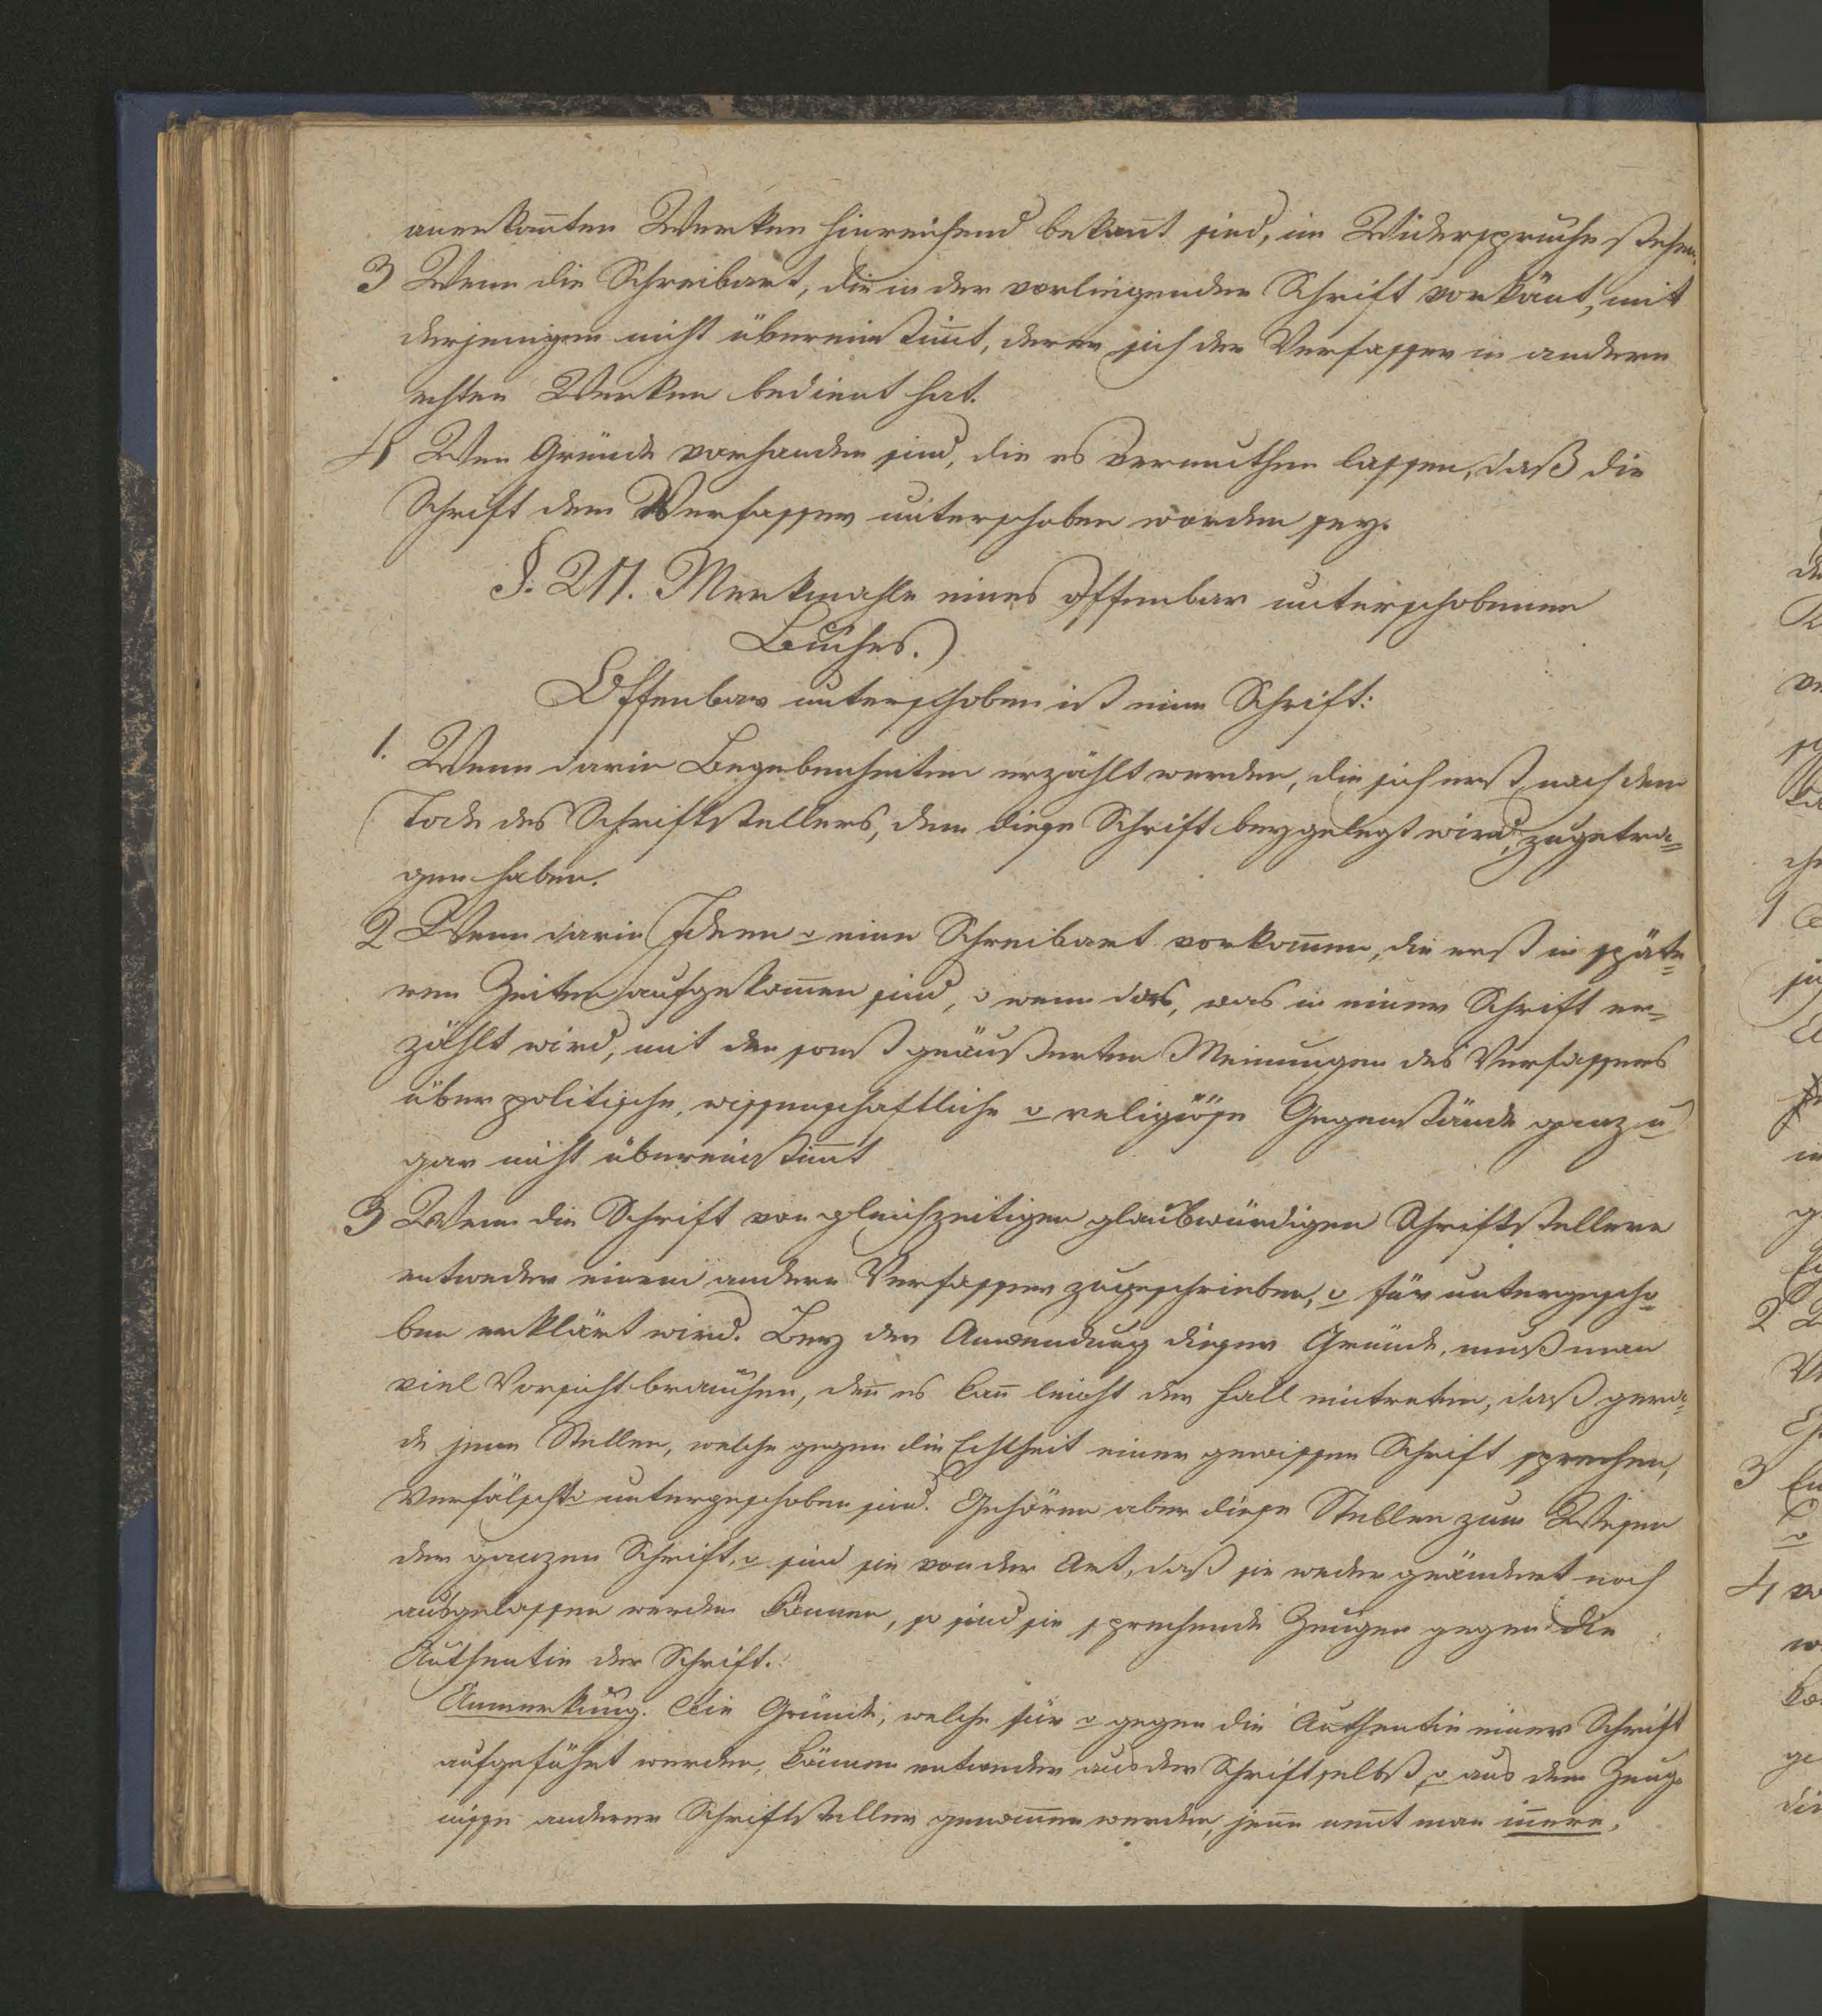 anerkan̄ten Werken hinreichend bekan̄t sind, im Widerspruche stehen.
3 Wenn die Schreibart, die in der vorliegenden Schrift vorkōmt, mit
derjenigen nicht übereinstim̄t, deren sich der Verfasser in andern
echten Werken bedient hat.
4 Wen Gründe vorhanden sind, die es vermuthen lassen, daß die
Schrift dem Verfasser unterschoben worden sey.
§. 211. Merkmahle eines offenbar unterschobenen
Buches.
Offenbar unterschoben ist eine Schrift:
1. Wenn darin Begebenheiten erzählt werden, die sich erst nach dem
Tode des Schriftstellers, dem diese Schrift beygelegt wird, zugetra=
gen haben.
2 Wenn darin Ideen o eine Schreibart vorkom̄en, die erst in späte=
ren Zeiten aufgekom̄en sind, o wenn das, was in einer Schrift er=
zählt wird, mit den sonst geäußerten Meinungen des Verfassers
über politische, wissenschaftliche o religiöse Gegenstände ganz u
gar nicht übereinstim̄t
3 Wenn die Schrift von gleichzeitigen glaubwürdigen Schriftstellern
entweder einem andern Verfasser zugeschrieben, o für untergescho=
ben erklärt wird. Bey der Anwendung dieser Gründe, muß man
viel Vorsicht brauchen, den̄ es kan̄ leicht der Fall eintreten, daß gera=
de jene Stellen, welche gegen die Echtheit einer gewissen Schrift sprechen,
Verfälscht o untergeschoben sind. Gehören aber diese Stellen zum Wesen
der ganzen Schrift, o sind sie von der Art, daß sie weder geändert noch
ausgelassen werden können, so sind sie sprechende Zeugen gegen die
Authentie der Schrift.
Anmerkung. Die Gründe, welche für o gegen die Authentie einer Schrift
aufgeführt werden, können entweder aus der Schrift selbst, o aus dem Zeug=
nisse anderer Schriftsteller genom̄en werden, jene nen̄t man in̄ere,